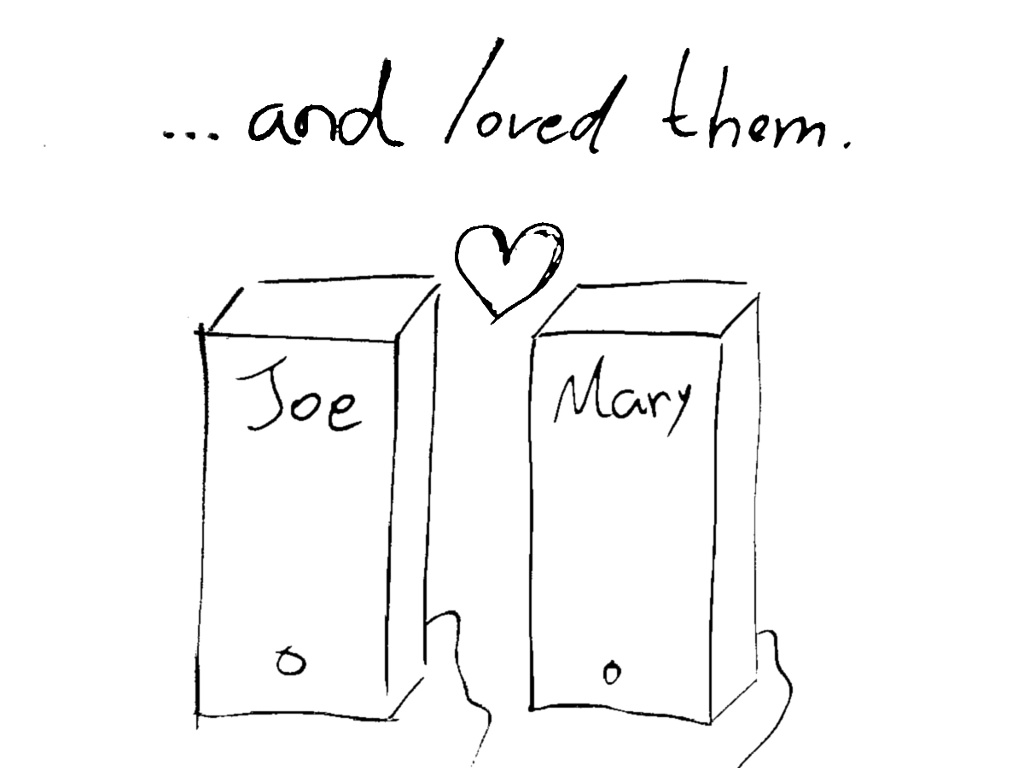 ... and loved them.
Joe
Mary